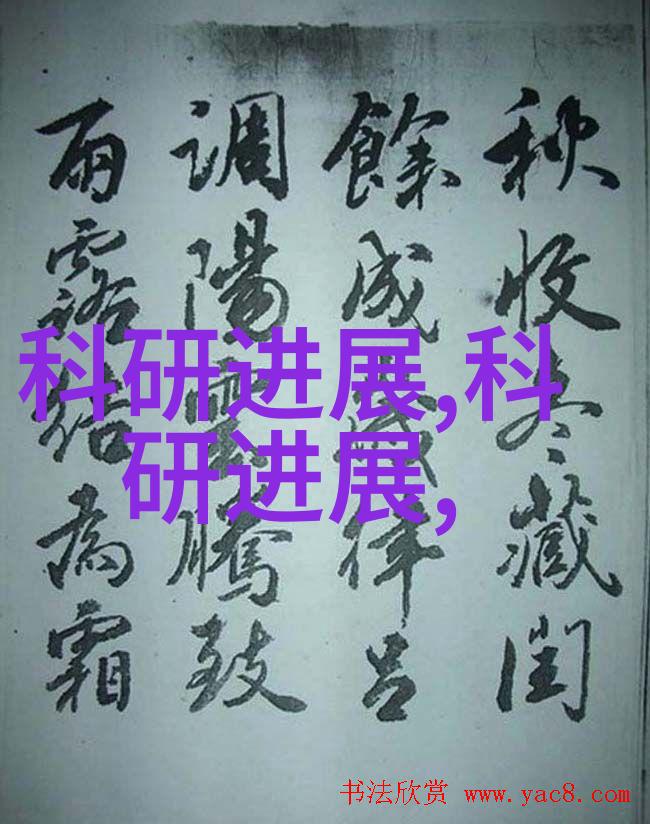 秋收冬藏閏
餘成歲律呂
調陽雲騰致
雨露結為霜
科研进展,科
研进展,
书法欣赏 www.yac8.com